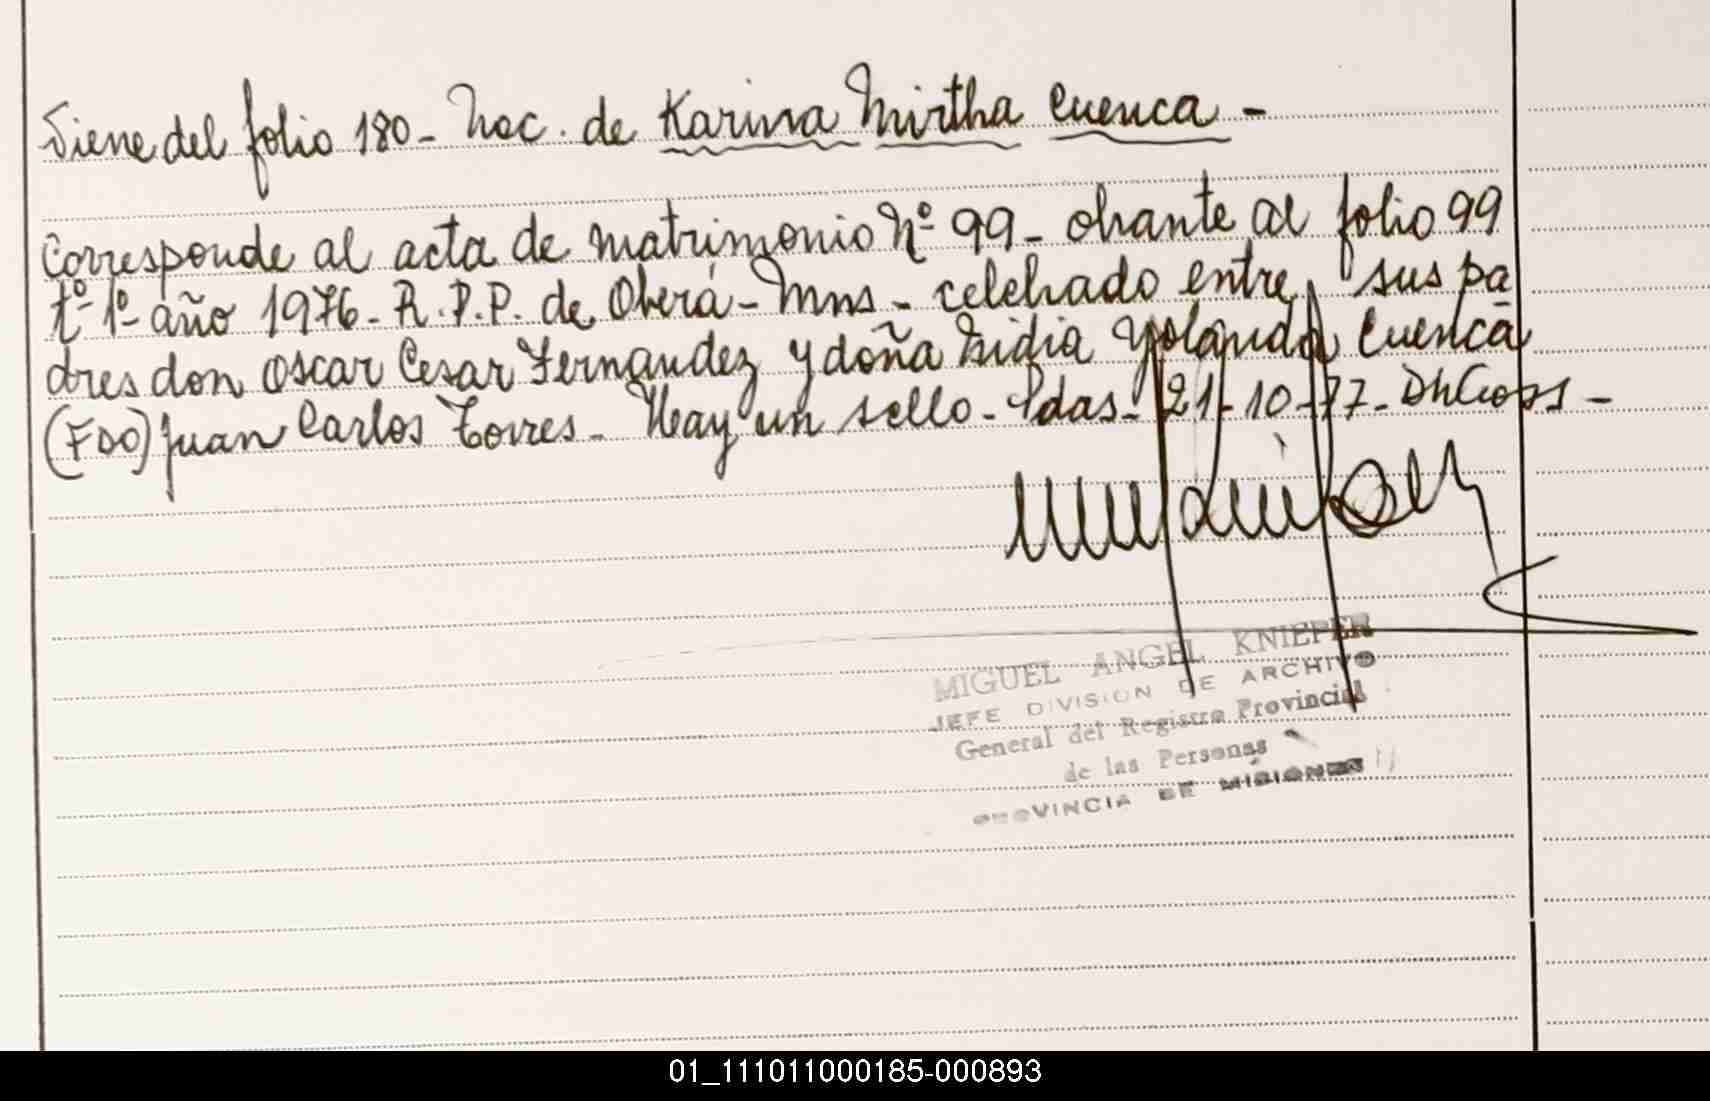 Viene del folio 180- Nac. de Karina Mirtha Cuenca -
Corresponde al acta de matrimonio Nº 99- obrante al folio 99
tº 1º año 1976- R.P.P. de Oberá- Mns - celebrado entre sus pa
dres don Oscar Cesar Fernandez y doña Lidia Yolanda Cuenca
(FDO) Juan Carlos Torres- Hay un sello- Pdas- 21-10-77-
MIGUEL ANGEL KNIEPER
JEFE DIVISION DE ARCHIVO
General del Registro Provincial
de las Personas
PROVINCIA DE MISIONES
01_111011000185-000893